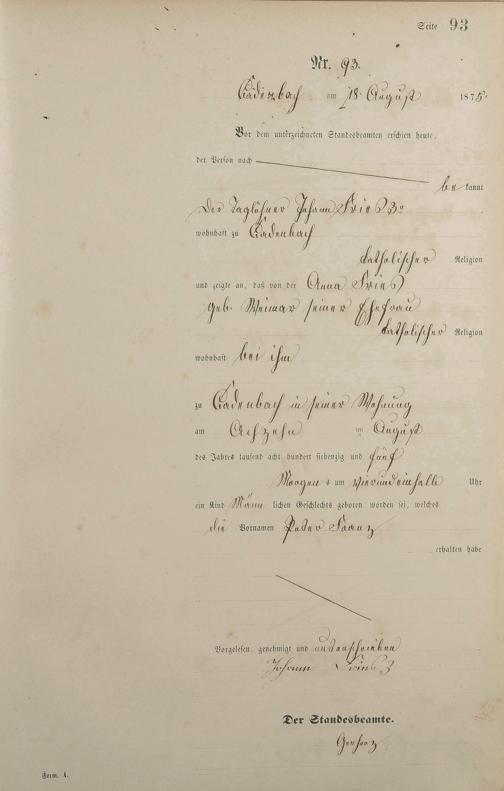 Seite 93
Nr. 93.
am 18 August 1875
Vor dem unterzeichneten Standesbeamten erschien heute,
der Person nach
be kannt
Der Taglöhner Johann Fries 3r
wohnhaft zu Cadenbach
katholischer Religion
und zeigte an, daß von der Anna Fries
geb. Weimar seiner Ehefrau
katholischer Religion
wohnhaft bei ihm
zu Cadenbach in seiner Wohnung
am Achzehn ten August
des Jahres tausend acht hundert siebenzig und fünf
Morgens um vierundeinhalb Uhr
ein Kind Männ lichen Geschlechts geboren worden sei, welches
die Vornamen Peter Franz
erhalten habe
Vorgelesen, genehmigt und unterschrieben
Johann Fries 3
Der Standesbeamte.
Form. A.